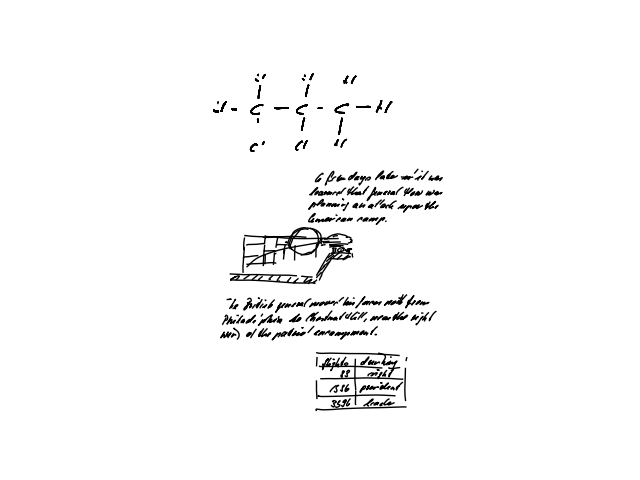 H H H
H - C - C - C - H
Cl Cl H
A few days later it was
learned that General Howe was
planning an attack upon the
American camp.
The British general moved his forces north from
Philadelphia to Chestnut Hill, near the right
wing of the patriot encampment.
flights
83 right
1536 president
3596 leads